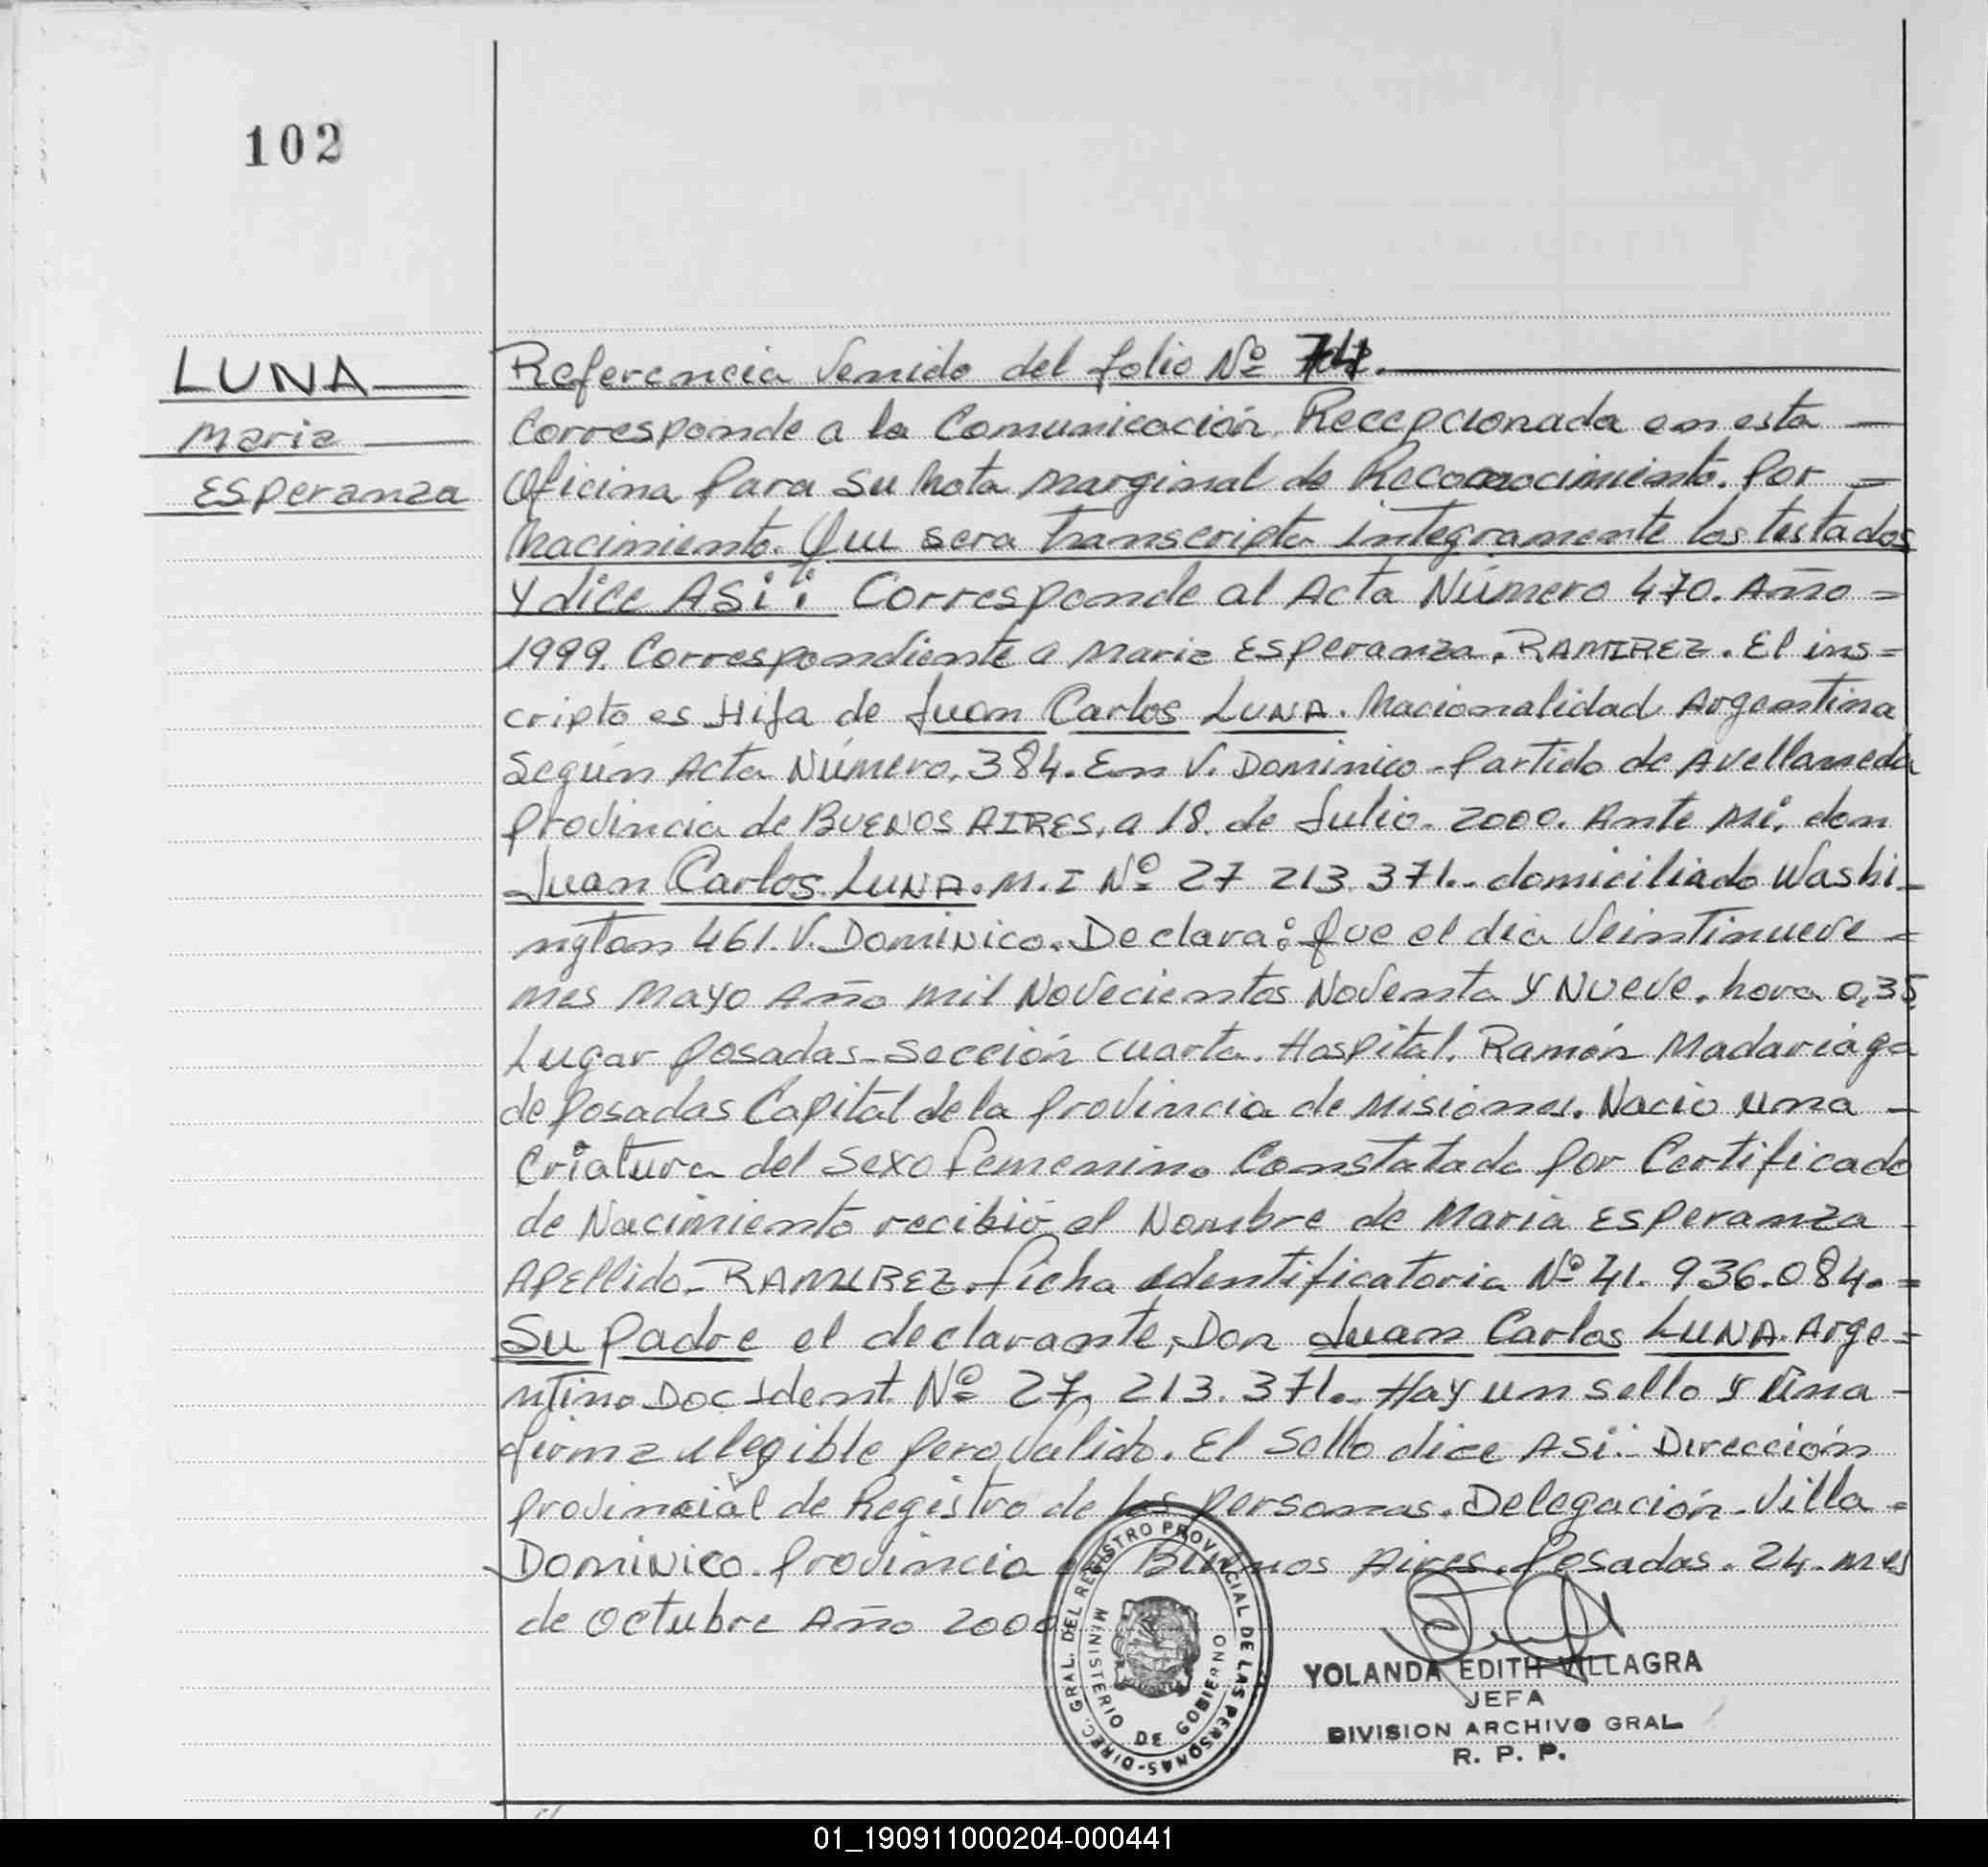 102
LUNA
Maria
Esperanza
Referencia Venido del folio Nº 74.
Corresponde a la Comunicación. Recepcionada en esta
Oficina Para Su Nota Marginal de Reconocimiento. Por =
Nacimiento. Que sera transcripta integramente los testados
Y dice ASi: Corresponde al Acta Número 470. Año =
1999. Correspondiente a Maria Esperanza. RAMIREZ. El ins=
cripto es Hija de Juan Carlos LUNA. Nacionalidad Argentina
Según Acta Número, 384. En V. Dominico - Partido de Avellaneda
Provincia de BUENOS AIRES, a 18. de Julio. 2000. Ante Mi, don
Juan Carlos LUNA. M.I Nº 27 213.371.- domiciliado Washi-
ngton 461. V. Dominico. Declara: Que el dia Veintinueve =
mes Mayo Año mil Novecientos Noventa Y Nueve. hora 0,35
Lugar Posadas - Sección cuarta. Hospital. Ramón Madariaga
de Posadas Capital de la Provincia de Misiones. Nacio una -
Criatura del Sexo femenino Constatado Por Certificado
de Nacimiento recibió el Nombre de Maria Esperanza
Apellido - RAMIREZ. ficha identificatoria Nº 41.936.084. =
Su Padre el declarante, Don Juan Carlos LUNA. Arge=
ntino Doc Ident. Nº 27, 213.371. Hay un sello Y Una -
firma ilegible Pero Valido. El Sello dice ASi: Dirección
Provincial de Registro de las Personas. Delegación - Villa =
Dominico. Provincia de Buenos Aires. Posadas. 24. mes
de Octubre Año 2000
DIREC. GRAL. DEL REGISTRO PROVINCIAL DE LAS PERSONAS-
MINISTERIO DE GOBIERNO
YOLANDA EDITH VILLAGRA
JEFA
DIVISION ARCHIVO GRAL
R. P. P.
01_190911000204-000441